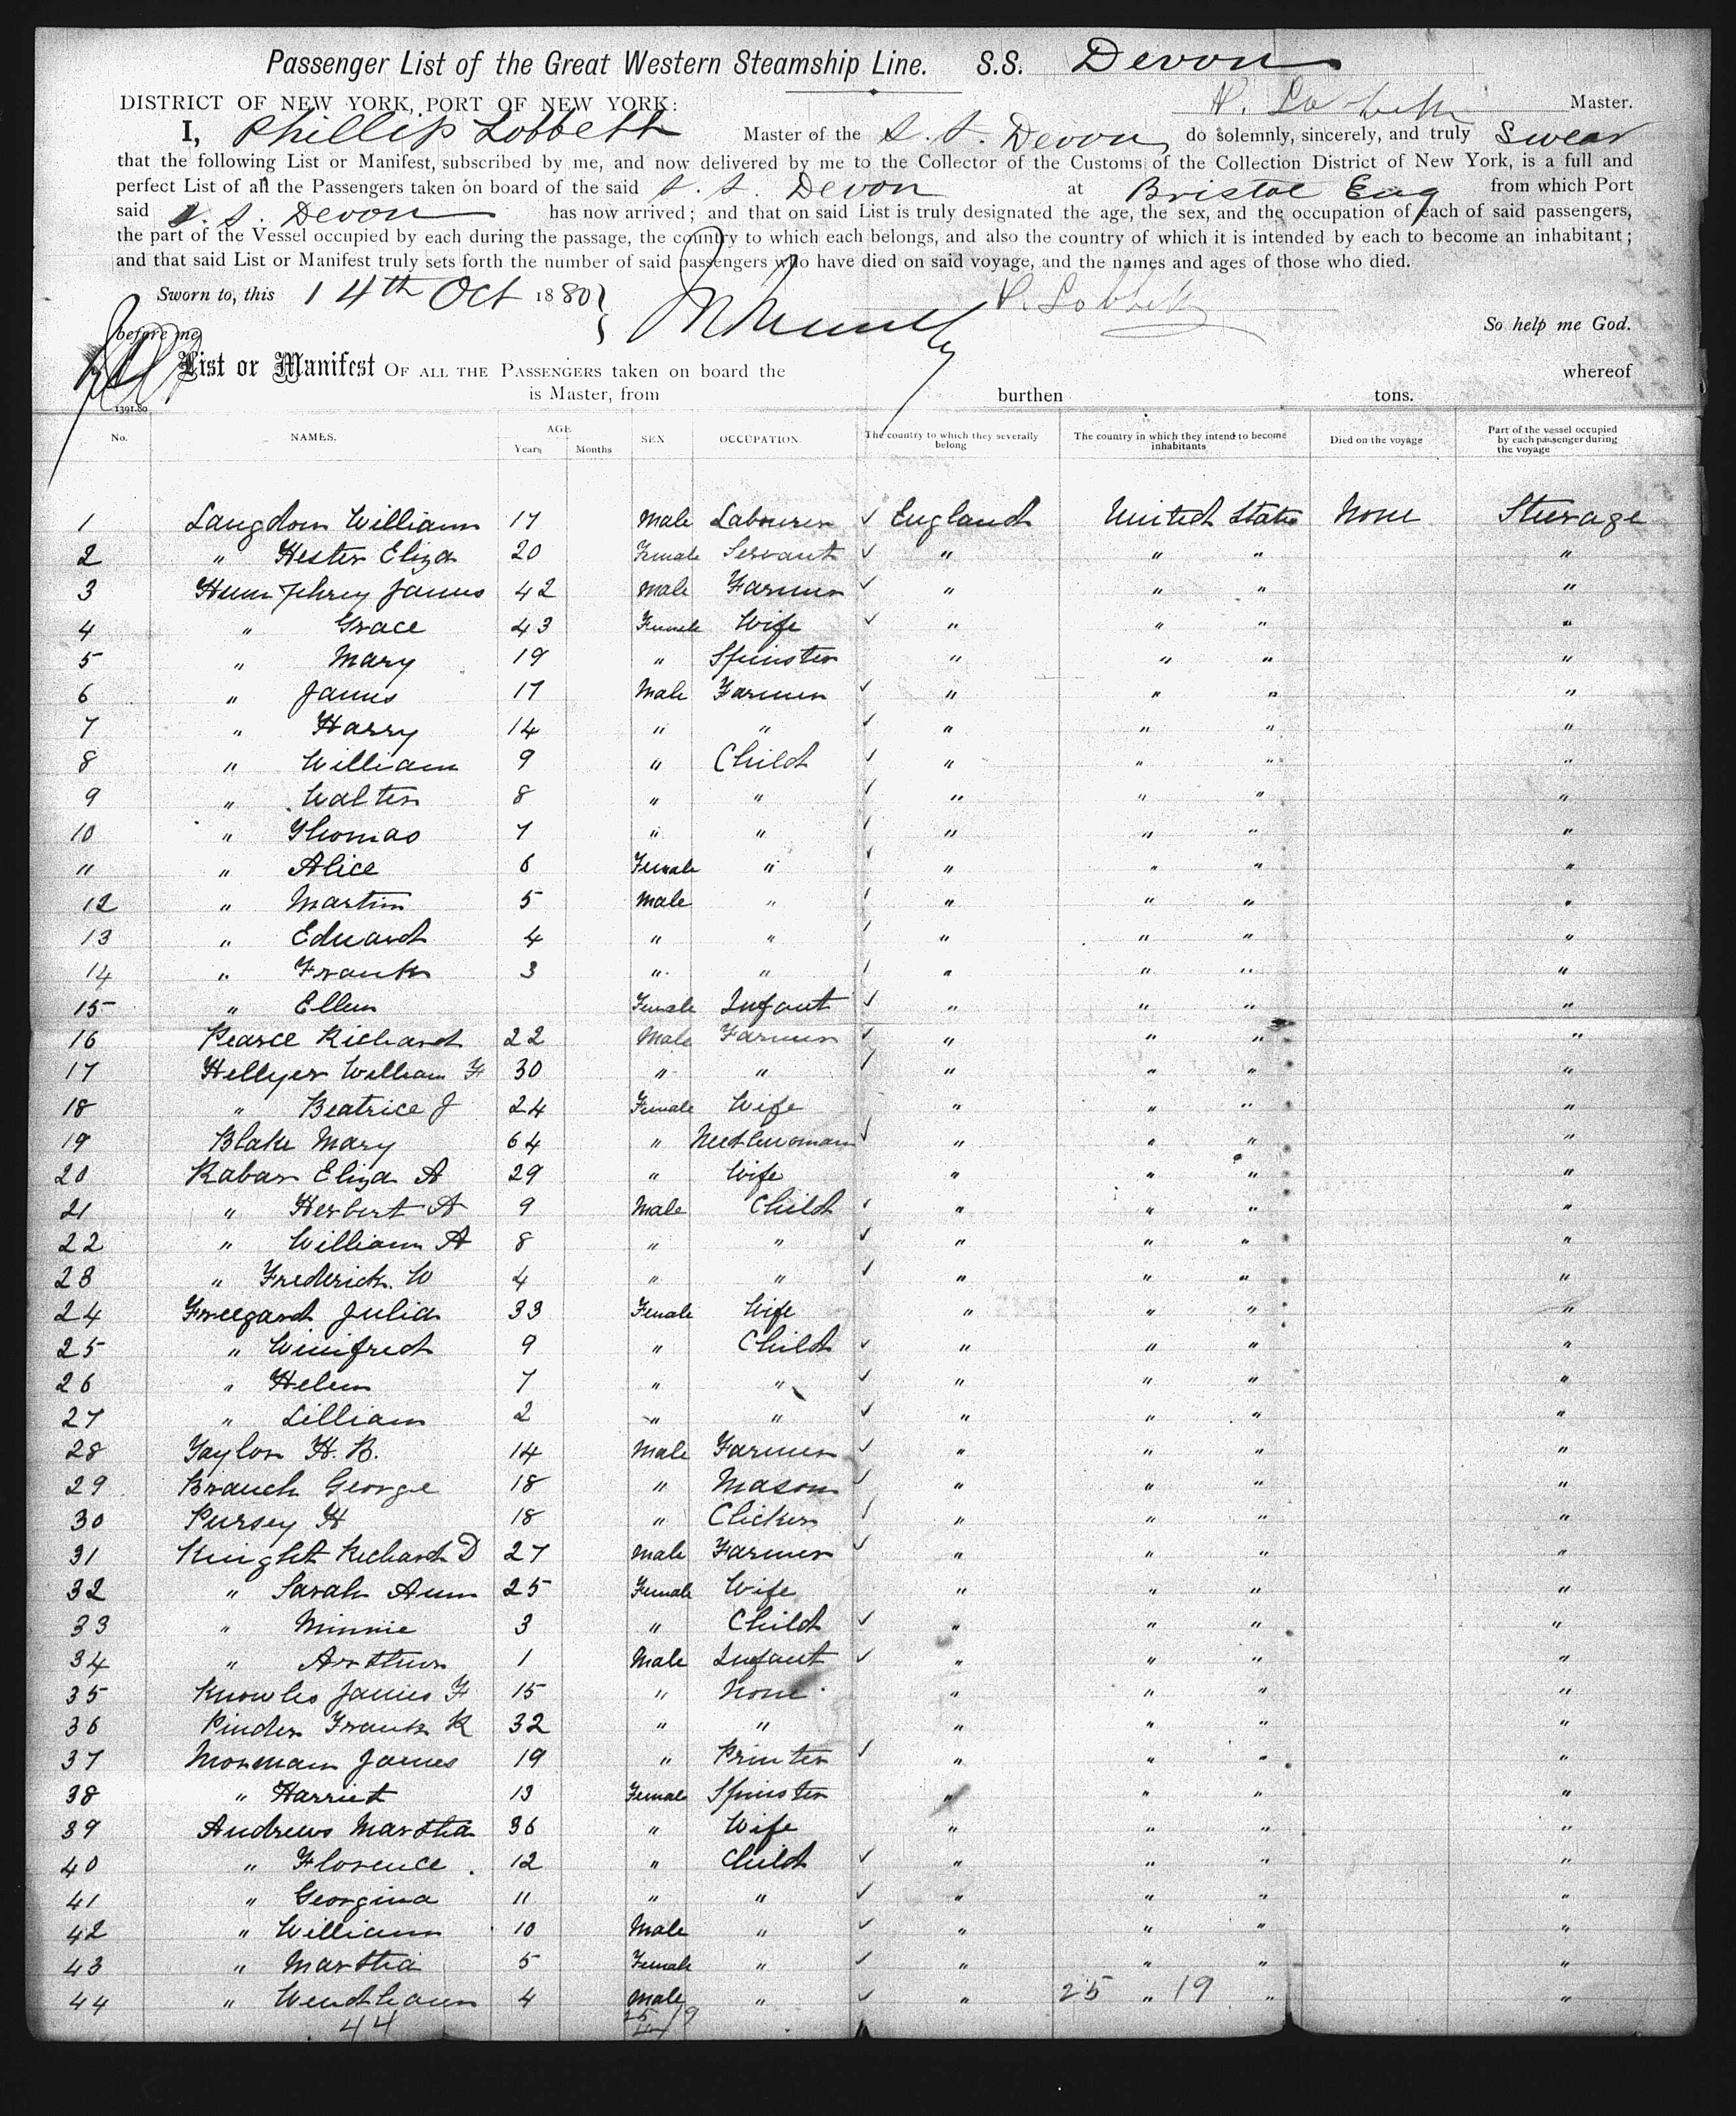 Passenger List of the Great Western Steamship Line. S.S. Devon
P. Lobbett Master.
DISTRICT OF NEW YORK, PORT OF NEW YORK:
I, Phillip Lobbett Master of the S. S. Devon do solemnly, sincerely, and truly Swear
that the following List or Manifest, subscribed by me, and now delivered by me to the Collector of the Customs of the Collection District of New York, is a full and
perfect List of all the Passengers taken on board of the said S. S. Devon at Bristol Eng from which Port
said S. S. Devon has now arrived; and that on said List is truly designated the age, the sex, and the occupation of each of said passengers,
the part of the Vessel occupied by each during the passage, the country to which each belongs, and also the country of which it is intended by each to become an inhabitant;
and that said List or Manifest truly sets forth the number of said passengers who have died on said voyage, and the names and ages of those who died.
Sworn to, this 14th Oct 1880 P. Lobbett
before me So help me God.
List or Manifest OF ALL THE PASSENGERS taken on board the whereof
is Master, from burthen tons.
1391.80
No. NAMES. AGE Years Months SEX OCCUPATION The country to which they severally belong The country in which they intend to become inhabitants Died on the voyage Part of the vessel occupied by each passenger during the voyage
1 Langdon William 17 Male Labourer ✓ England United States None Steerage
2 " Hester Eliza 20 Female Servant ✓ " " " "
3 Humphrey James 42 Male Farmer ✓ " " " "
4 " Grace 43 Female Wife ✓ " " " "
5 " Mary 19 " Spinster " " " "
6 " James 17 Male Farmer ✓ " " " "
7 " Harry 14 " " ✓ " " " "
8 " William 9 " Child ✓ " " " "
9 " Walter 8 " " ✓ " " " "
10 " Thomas 7 " " ✓ " " " "
11 " Alice 6 Female " ✓ " " " "
12 " Martin 5 Male " ✓ " " " "
13 " Edward 4 " " ✓ " " " "
14 " Frank 3 " " ✓ " " " "
15 " Ellen Female Infant ✓ " " " "
16 Pearce Richard 22 Male Farmer ✓ " " " "
17 Hellyer William F 30 " " ✓ " " " "
18 " Beatrice J 24 Female Wife " " " "
19 Blake Mary 64 " Needlewoman ✓ " " " "
20 Rabar Eliza A 29 " Wife " " " "
21 " Herbert A 9 Male Child ✓ " " " "
22 " William A 8 " " ✓ " " " "
23 " Frederick W 4 " " ✓ " " " "
24 Freegard Julia 33 Female Wife " " " "
25 " Winifred 9 " Child ✓ " " " "
26 " Helen 7 " " ✓ " " " "
27 " Lilliam 2 " " ✓ " " " "
28 Taylor H. B. 14 Male Farmer ✓ " " " "
29 Branch George 18 " Mason ✓ " " " "
30 Pursey H 18 " Clicker ✓ " " " "
31 Knight Richard D 27 Male Farmer ✓ " " " "
32 " Sarah Ann 25 Female Wife " " " "
33 " Minnie 3 " Child ✓ " " " "
34 " Arthur 1 Male Infant ✓ " " " "
35 Knowles James F 15 " None " " " "
36 Pinder Frank R 32 " " " " " "
37 Monman James 19 " Printer ✓ " " " "
38 " Harriet 13 Female Spinster " " " "
39 Andrews Martha 36 " Wife " " " "
40 " Florence 12 " Child ✓ " " " "
41 " Georgina 11 " " ✓ " " " "
42 " William 10 Male " ✓ " " " "
43 " Martha 5 Female " ✓ " " " "
44 " Windham 4 Male " ✓ " 25 " 19 " "
44 25/19
44